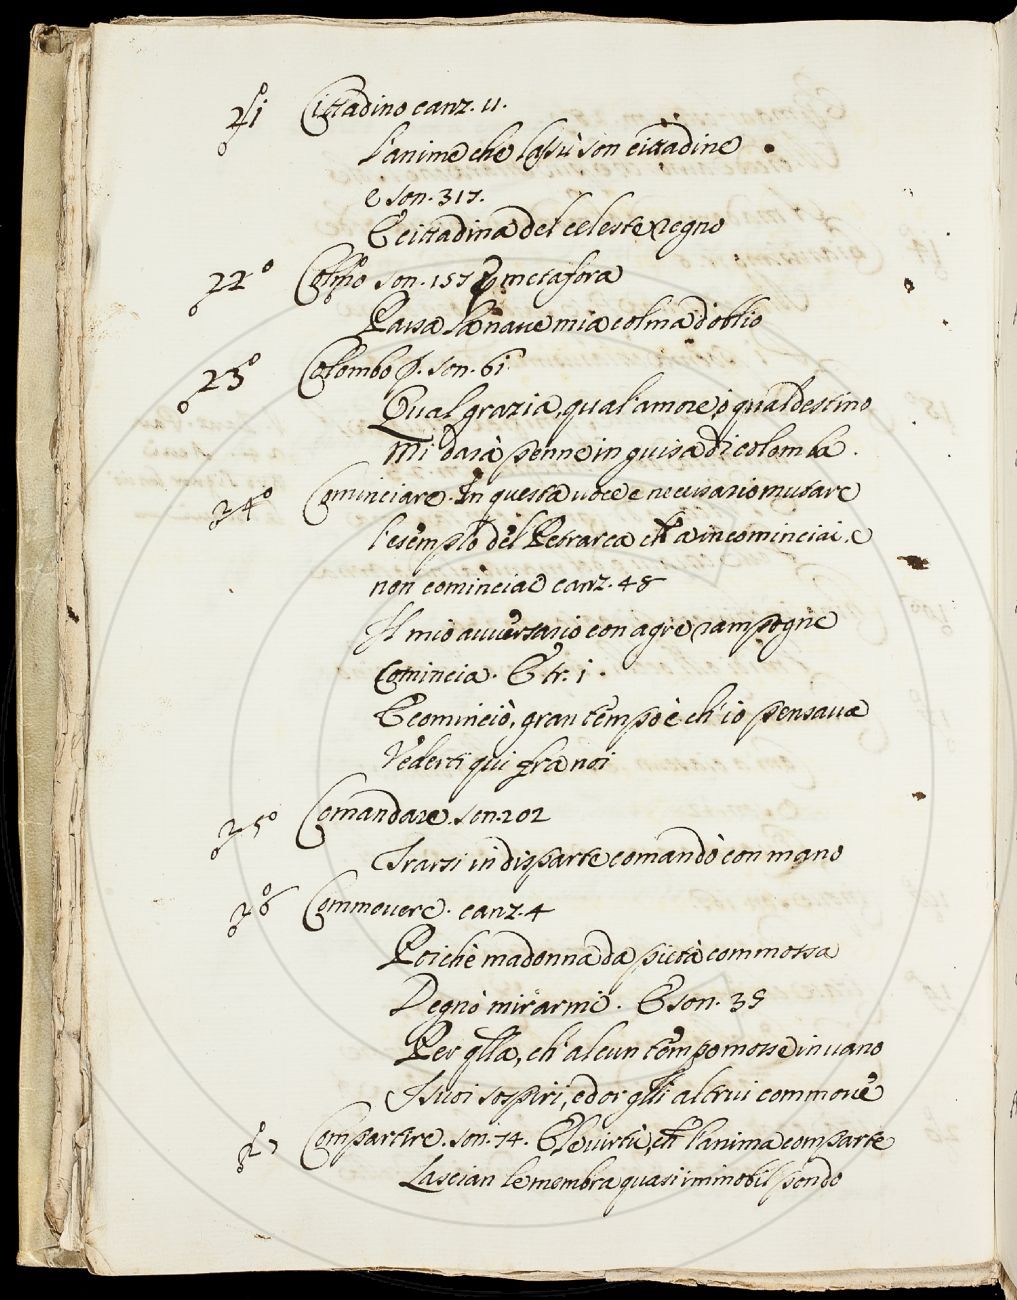 21° Cittadino canz. 11.
L'anime che lassù son cittadine
e son. 317.
E cittadina del celeste regno
22° Colmo son. 157 metafora
Passa la nave mia colma d'oblio
23° Colombo p. son. 61.
Qual grazia, qual'amore, o qual destino
Mi darà penne in guisa di colomba.
24° Cominciare. In questa voce e necessario mutare
l'esempio del Petrarca ch'a incominciai, e
non comincia canz. 48
Il mio avversario con agre rampogne
Comincia. E tr. i.
E cominciò, gran tempo è ch'io pensava
Vederti qui fra noi
25° Comandare. son. 202
Trarsi in disparte comandò con mano
26° Commovere. canz. 4
Poichè madonna da pietà commossa
Degnò mirarmi. E son. 39
Per qlla, ch'alcun tempo mosse in vano
I suoi sospiri, ed or qlli altrui commove
27 Compartire. son. 74. E le virtù, ch l'anima comparte
Lascian le membra quasi immobil pondo